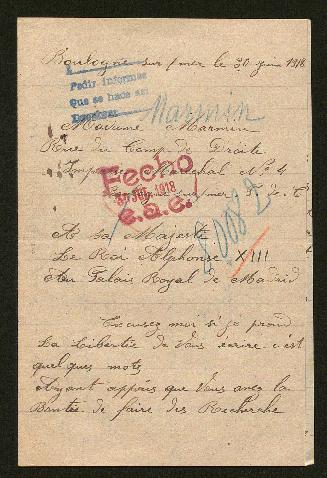 Boulogne sur mer le 30 juin 1918
Pedir informes
Que se hace así
Marmin
Madame Marmin
Rue du Camp de Droite
Impasse Maréchal No 4
Boulogne sur mer P. d. C
Fecho
30 JUL. 1918
e.s.e.
80082
A sa Majesté
Le Roi Alphonse XIII
Au Palais Royal de Madrid
Excusez moi si je prend
La Libertée de Vous écrire c'est
quelques mots
Ayant appris que Vous avez la
Bontée de faire des Recherche